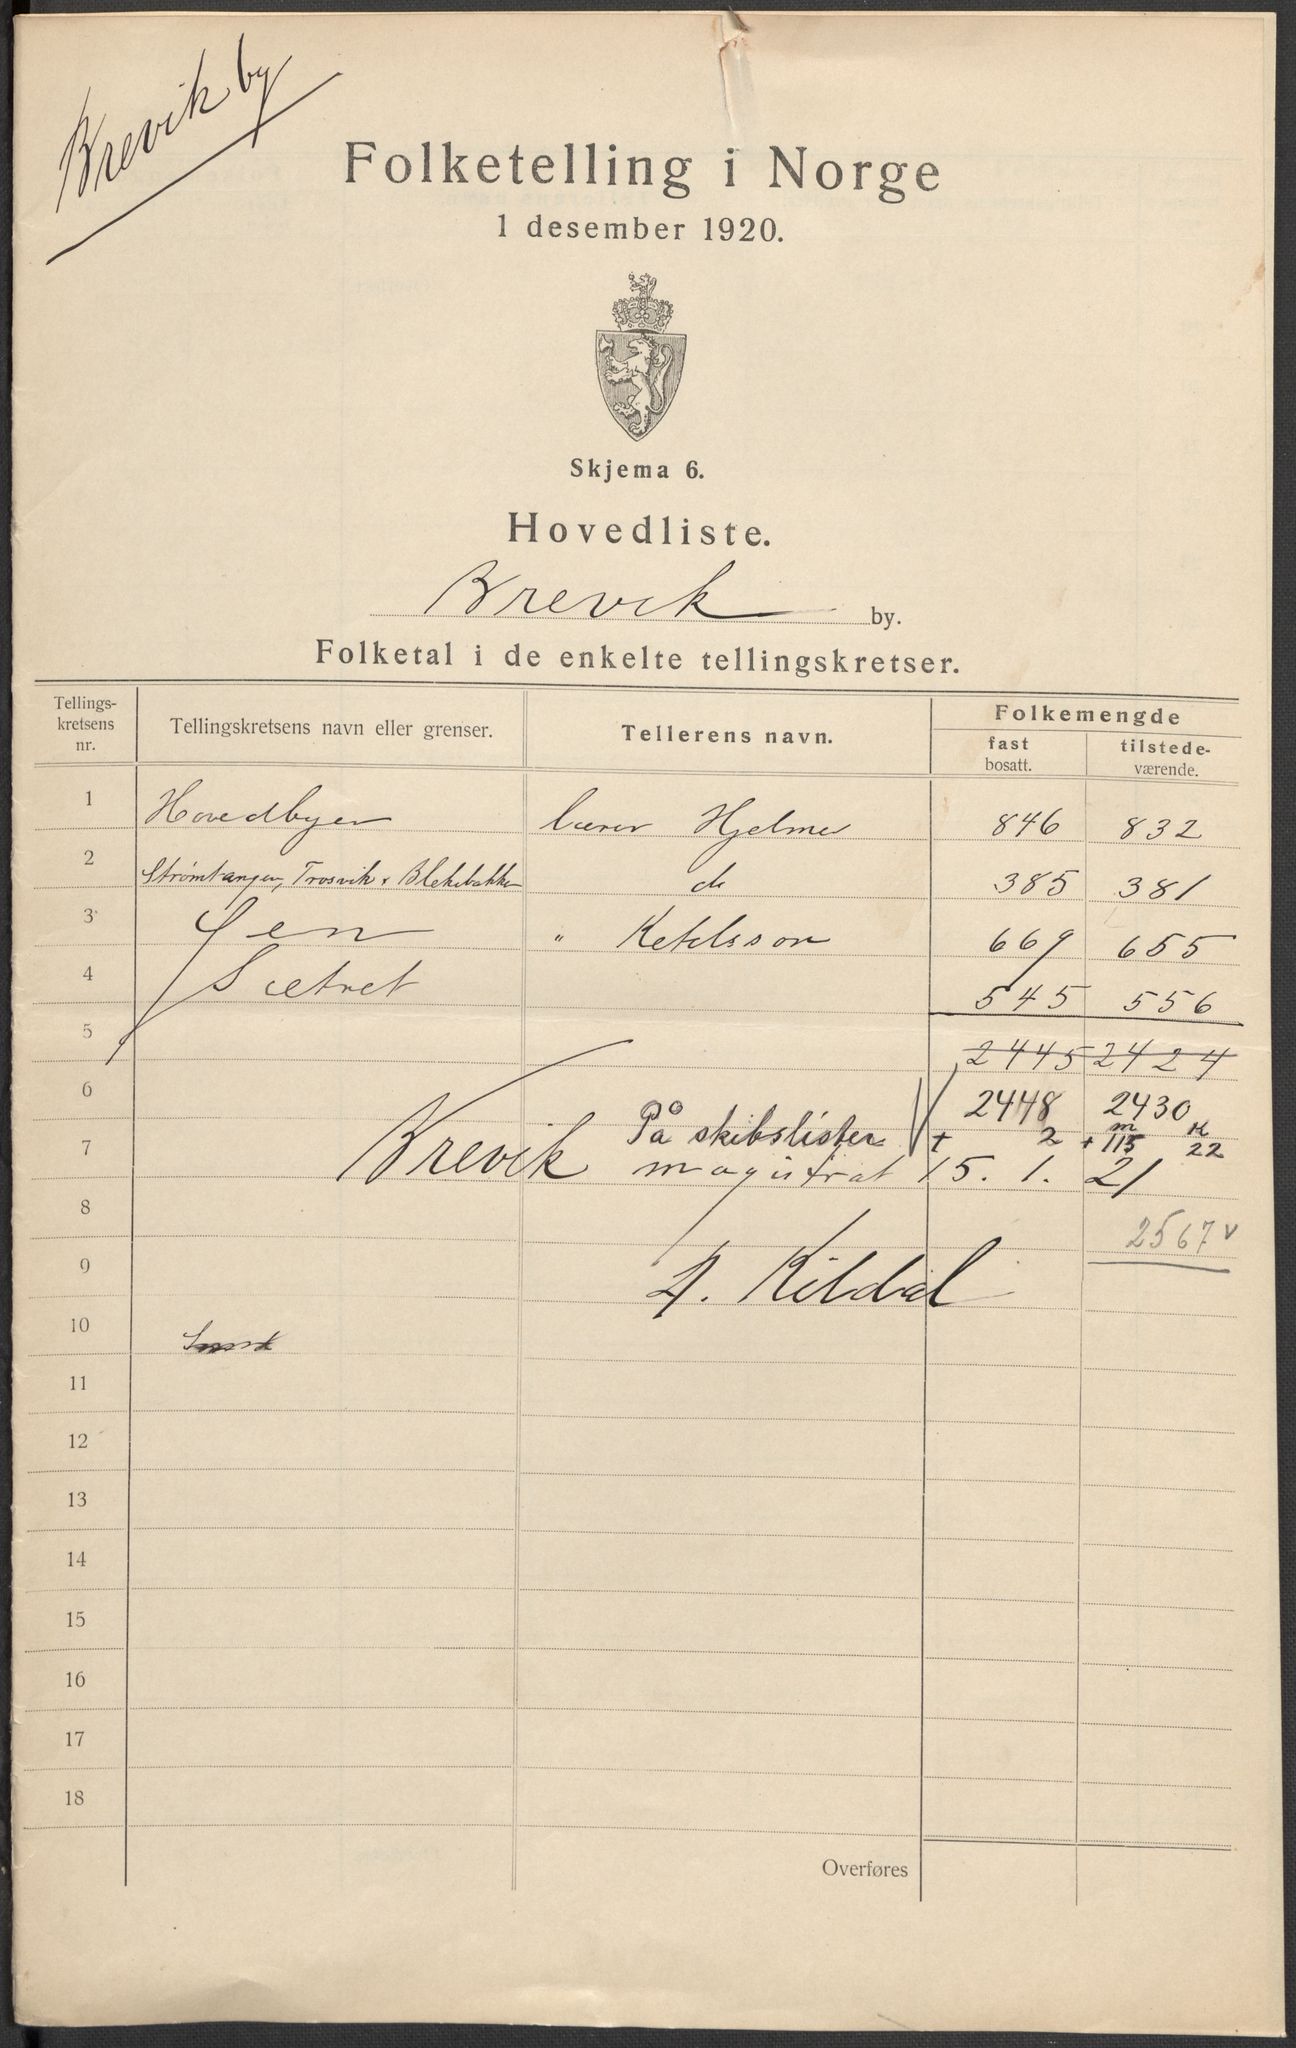 Brevik by
Folketelling i Norge
1 desember 1920.
Skjema 6.
Hovedliste.
Brevik by.
Folketal i de enkelte tellingskretser.
Tellings-kretsens nr. Tellingskretsens navn eller grenser. Tellerens navn. Folkemengde fast bosatt. tilstede-værende.
1 Hovedbyen lærer Hjelmer 846 832
2 Strømtangen, Trosvik + Blekebakken do 385 381
3 Øen " Ketelsson 669 655
4 Sætret 545 556
5 2445 2424
6 2448 2430
7 På skibslister + 2 + m 115 k 22
Brevik magistrat 15. 1. 21
8 2567 v
9 A. Kildal
10
11
12
13
14
15
16
17
18
Overføres